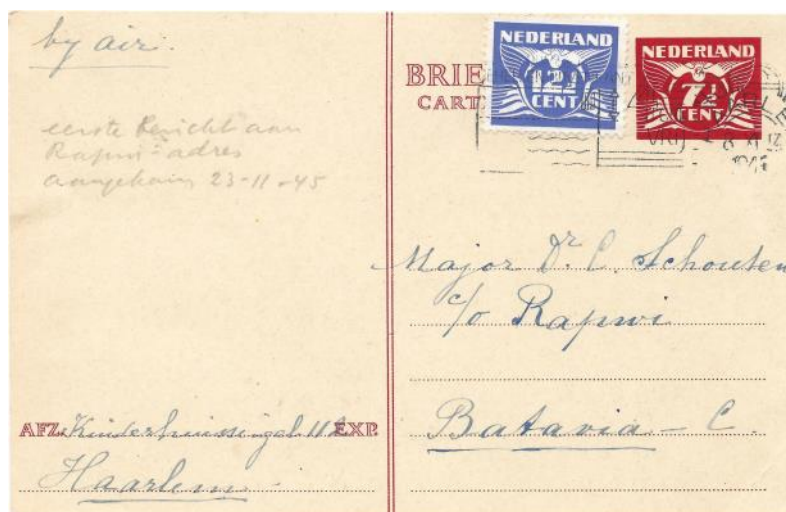 by air.
eerste bericht aan
Rapwi-adres
aangekomen 23-11-45
BRIE
CART
NEDERLAND
12½
CENT
NEDERLAND
7½
CENT
Major Dr. C. Schouten
c/o Rapwi
Batavia - C.
AFZ. Kinderhuissingel 112 EXP.
Haarlem